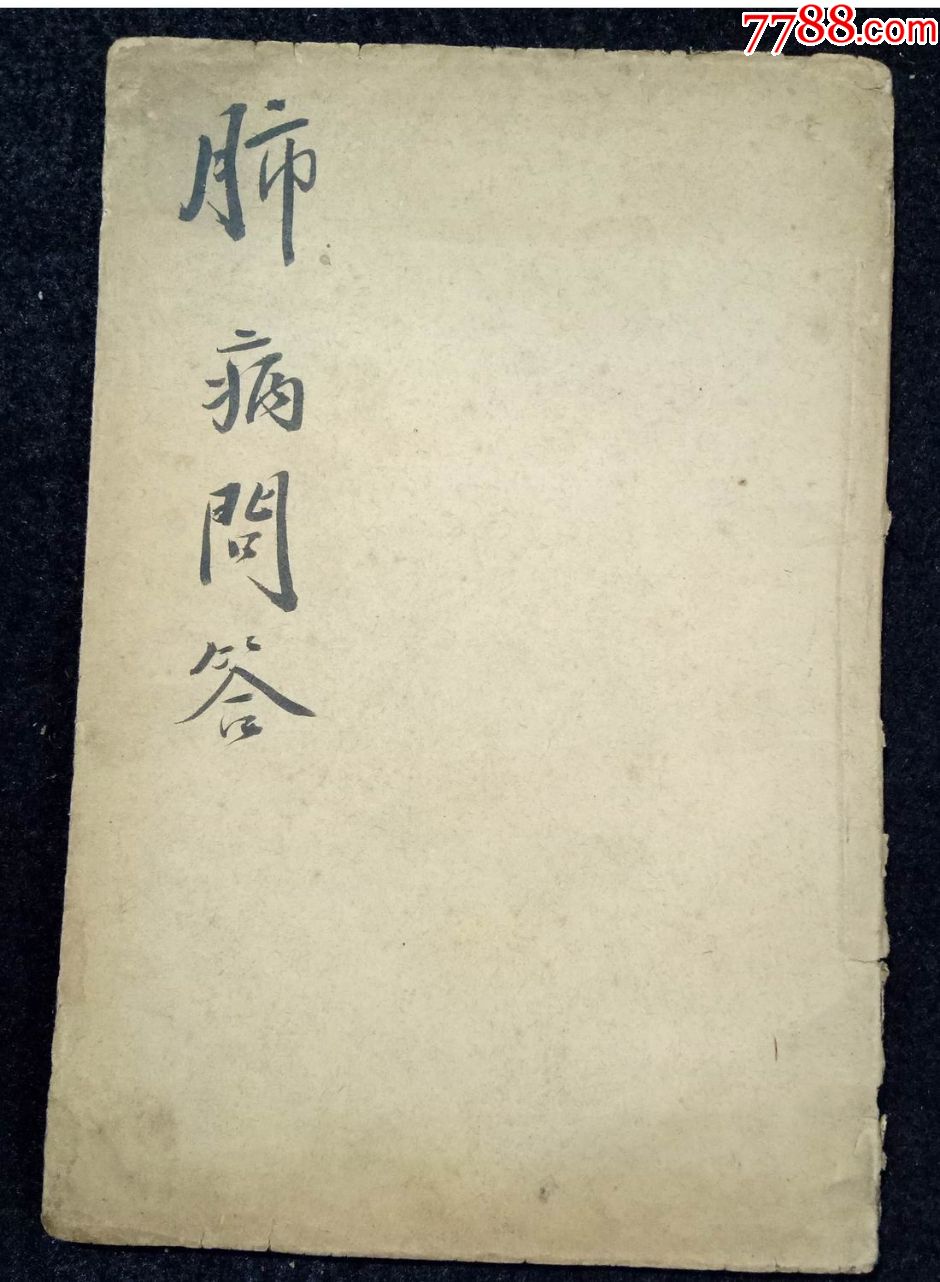 7788.com
肺病問答